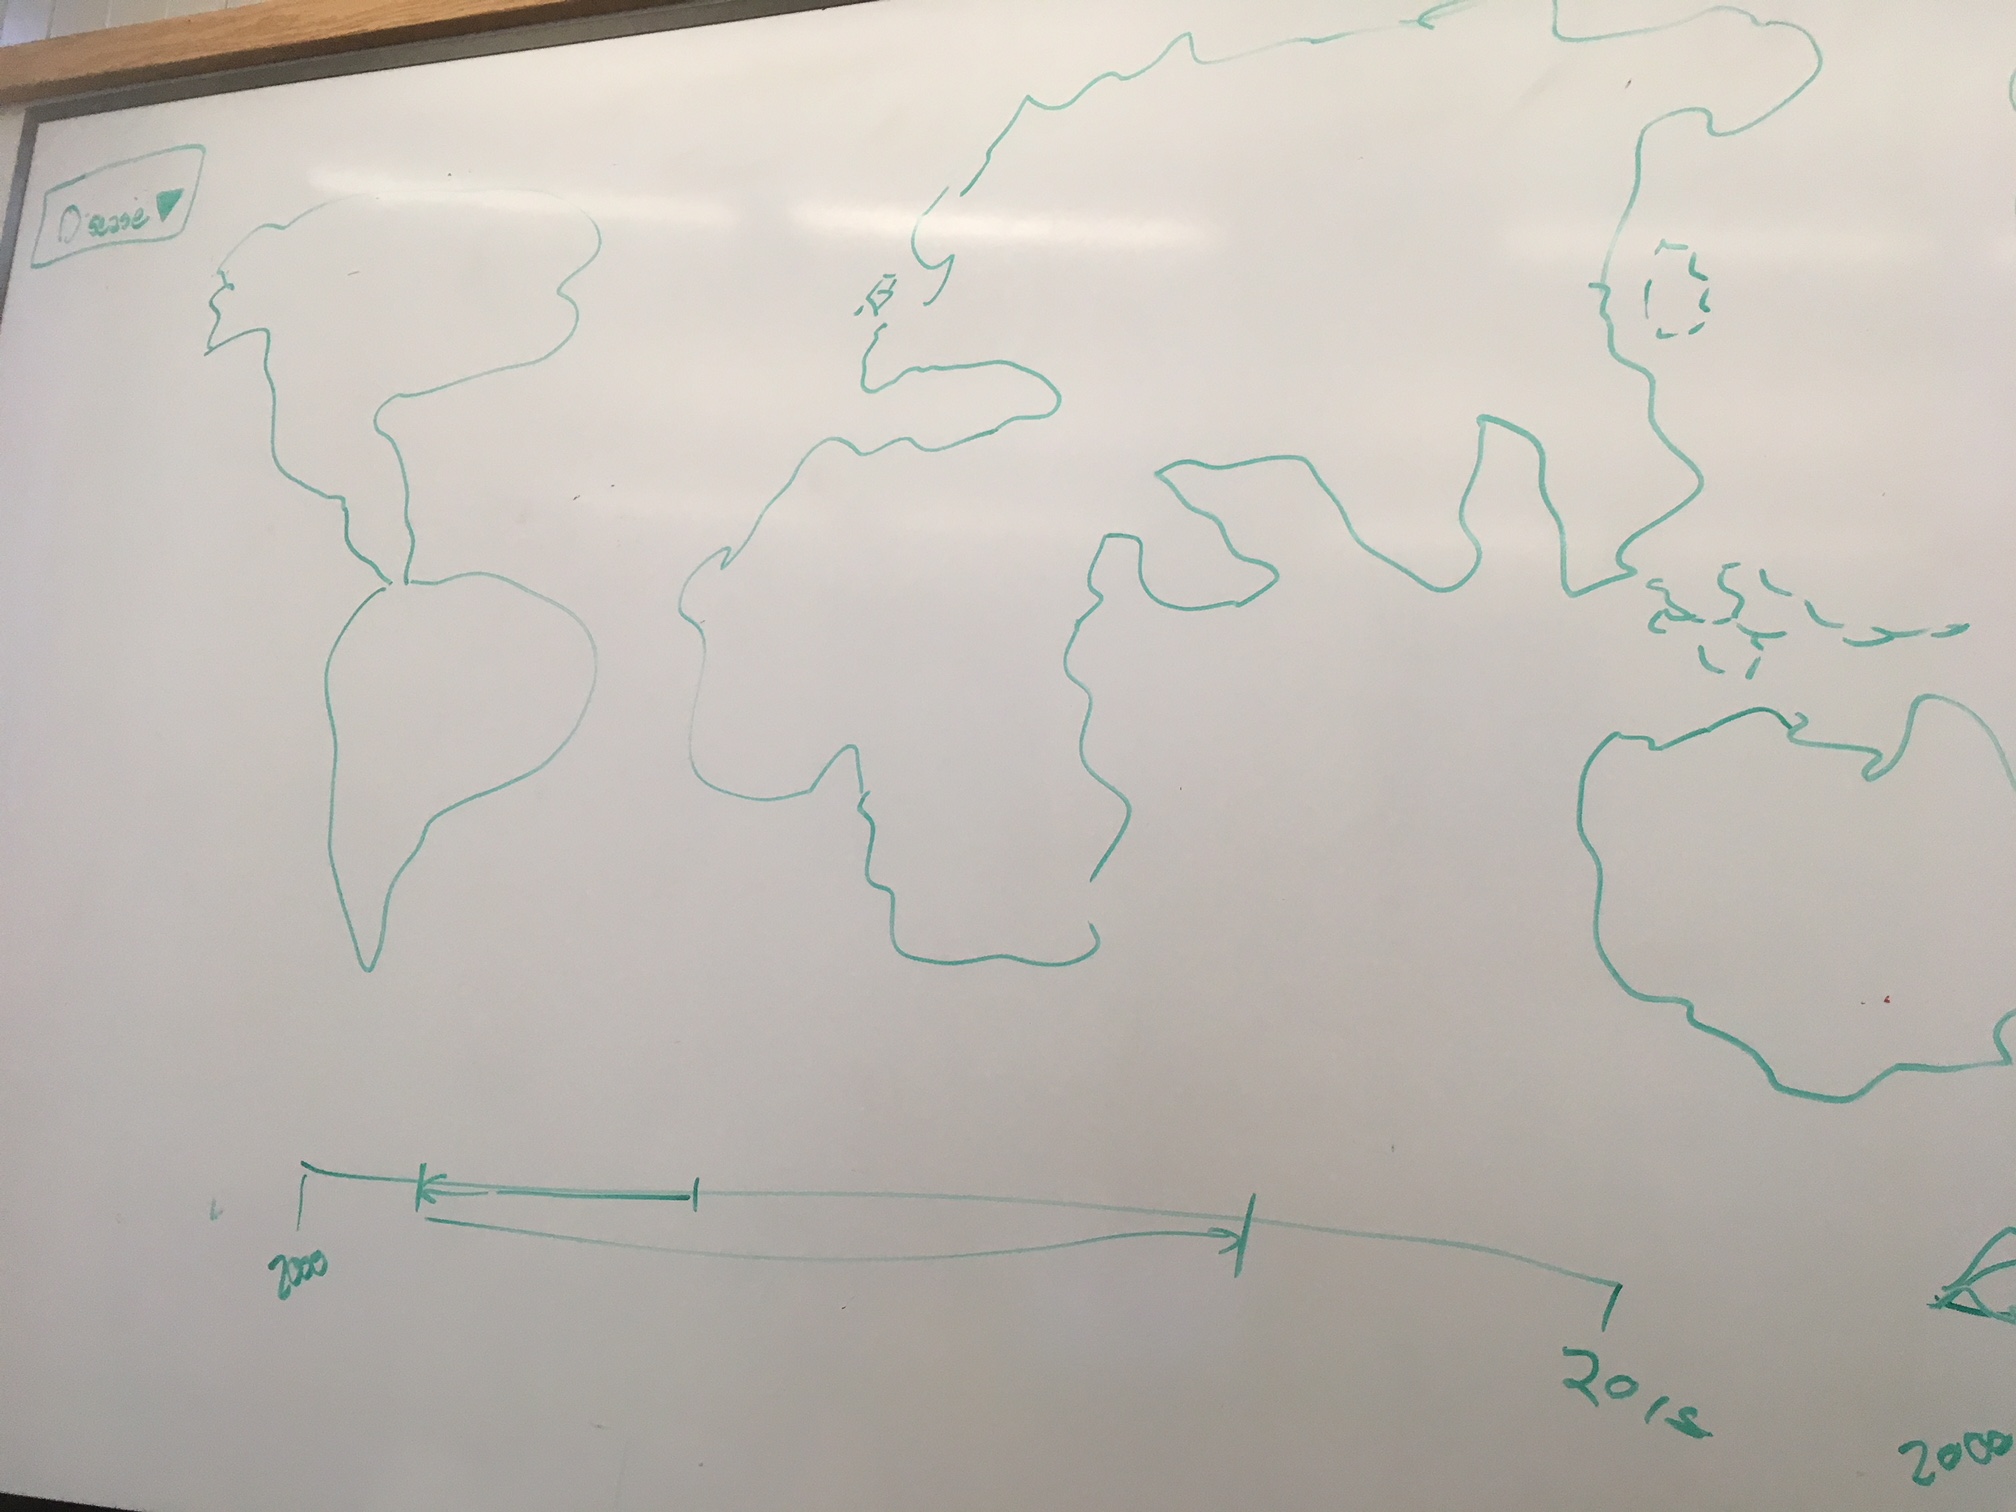 Disease
2000
2018
2000